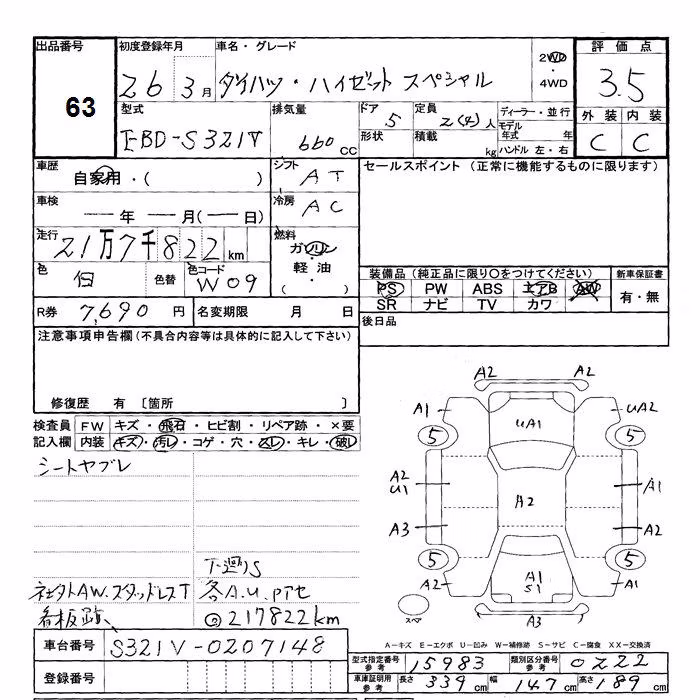 出品番号 初度登録年月 車名・グレード 評価点
63
26 3月 ダイハツ・ハイゼット スペシャル 2WD ・ 4WD 3.5
型式 排気量 ドア 定員 ディーラー・並行 外装 内装
EBD-S321V 660 cc 5 2(4)人 モデル年式 年 C C
形状 積載 kg ハンドル 左・右
車歴 自家用・( ) シフト AT セールスポイント (正常に機能するものに限ります)
車検 ― 年 ― 月(― 日) 冷房 AC
走行 21万7千822km 燃料 ガソリン・軽油・( )
色 白 色替 色コード W09 装備品 (純正品に限り○をつけてください) 新車保証書
PS PW ABS エアB AW 有・無
SR ナビ TV カワ
R券 7,690 円 名変期限 月 日 後日品
注意事項申告欄(不具合内容等は具体的に記入して下さい)
修復歴 有 〔箇所 〕
検査員記入欄 FW キズ・飛石・ヒビ割・リペア跡・×要
内装 キズ・汚レ・コゲ・穴・スレ・キレ・破レ
シートヤブレ
下廻りS
社外AW.スタッドレスT 各A.U.PTセ
看板跡、 ◎217822km
A2 A2
A1 UA1 UA2
5 5
A2 U1 A2 A1
A3 A2
5 5
A2 A1 S1 A1
スペア A3
A-キズ E-エクボ U-凹み W-補修跡 S-サビ C-腐食 XX-交換済
車台番号 S321V-0207148
型式指定番号 参考 15983 類別区分番号 参考 0222
登録番号
車庫証明用 参考 長さ 339cm 幅 147cm 高さ 189cm